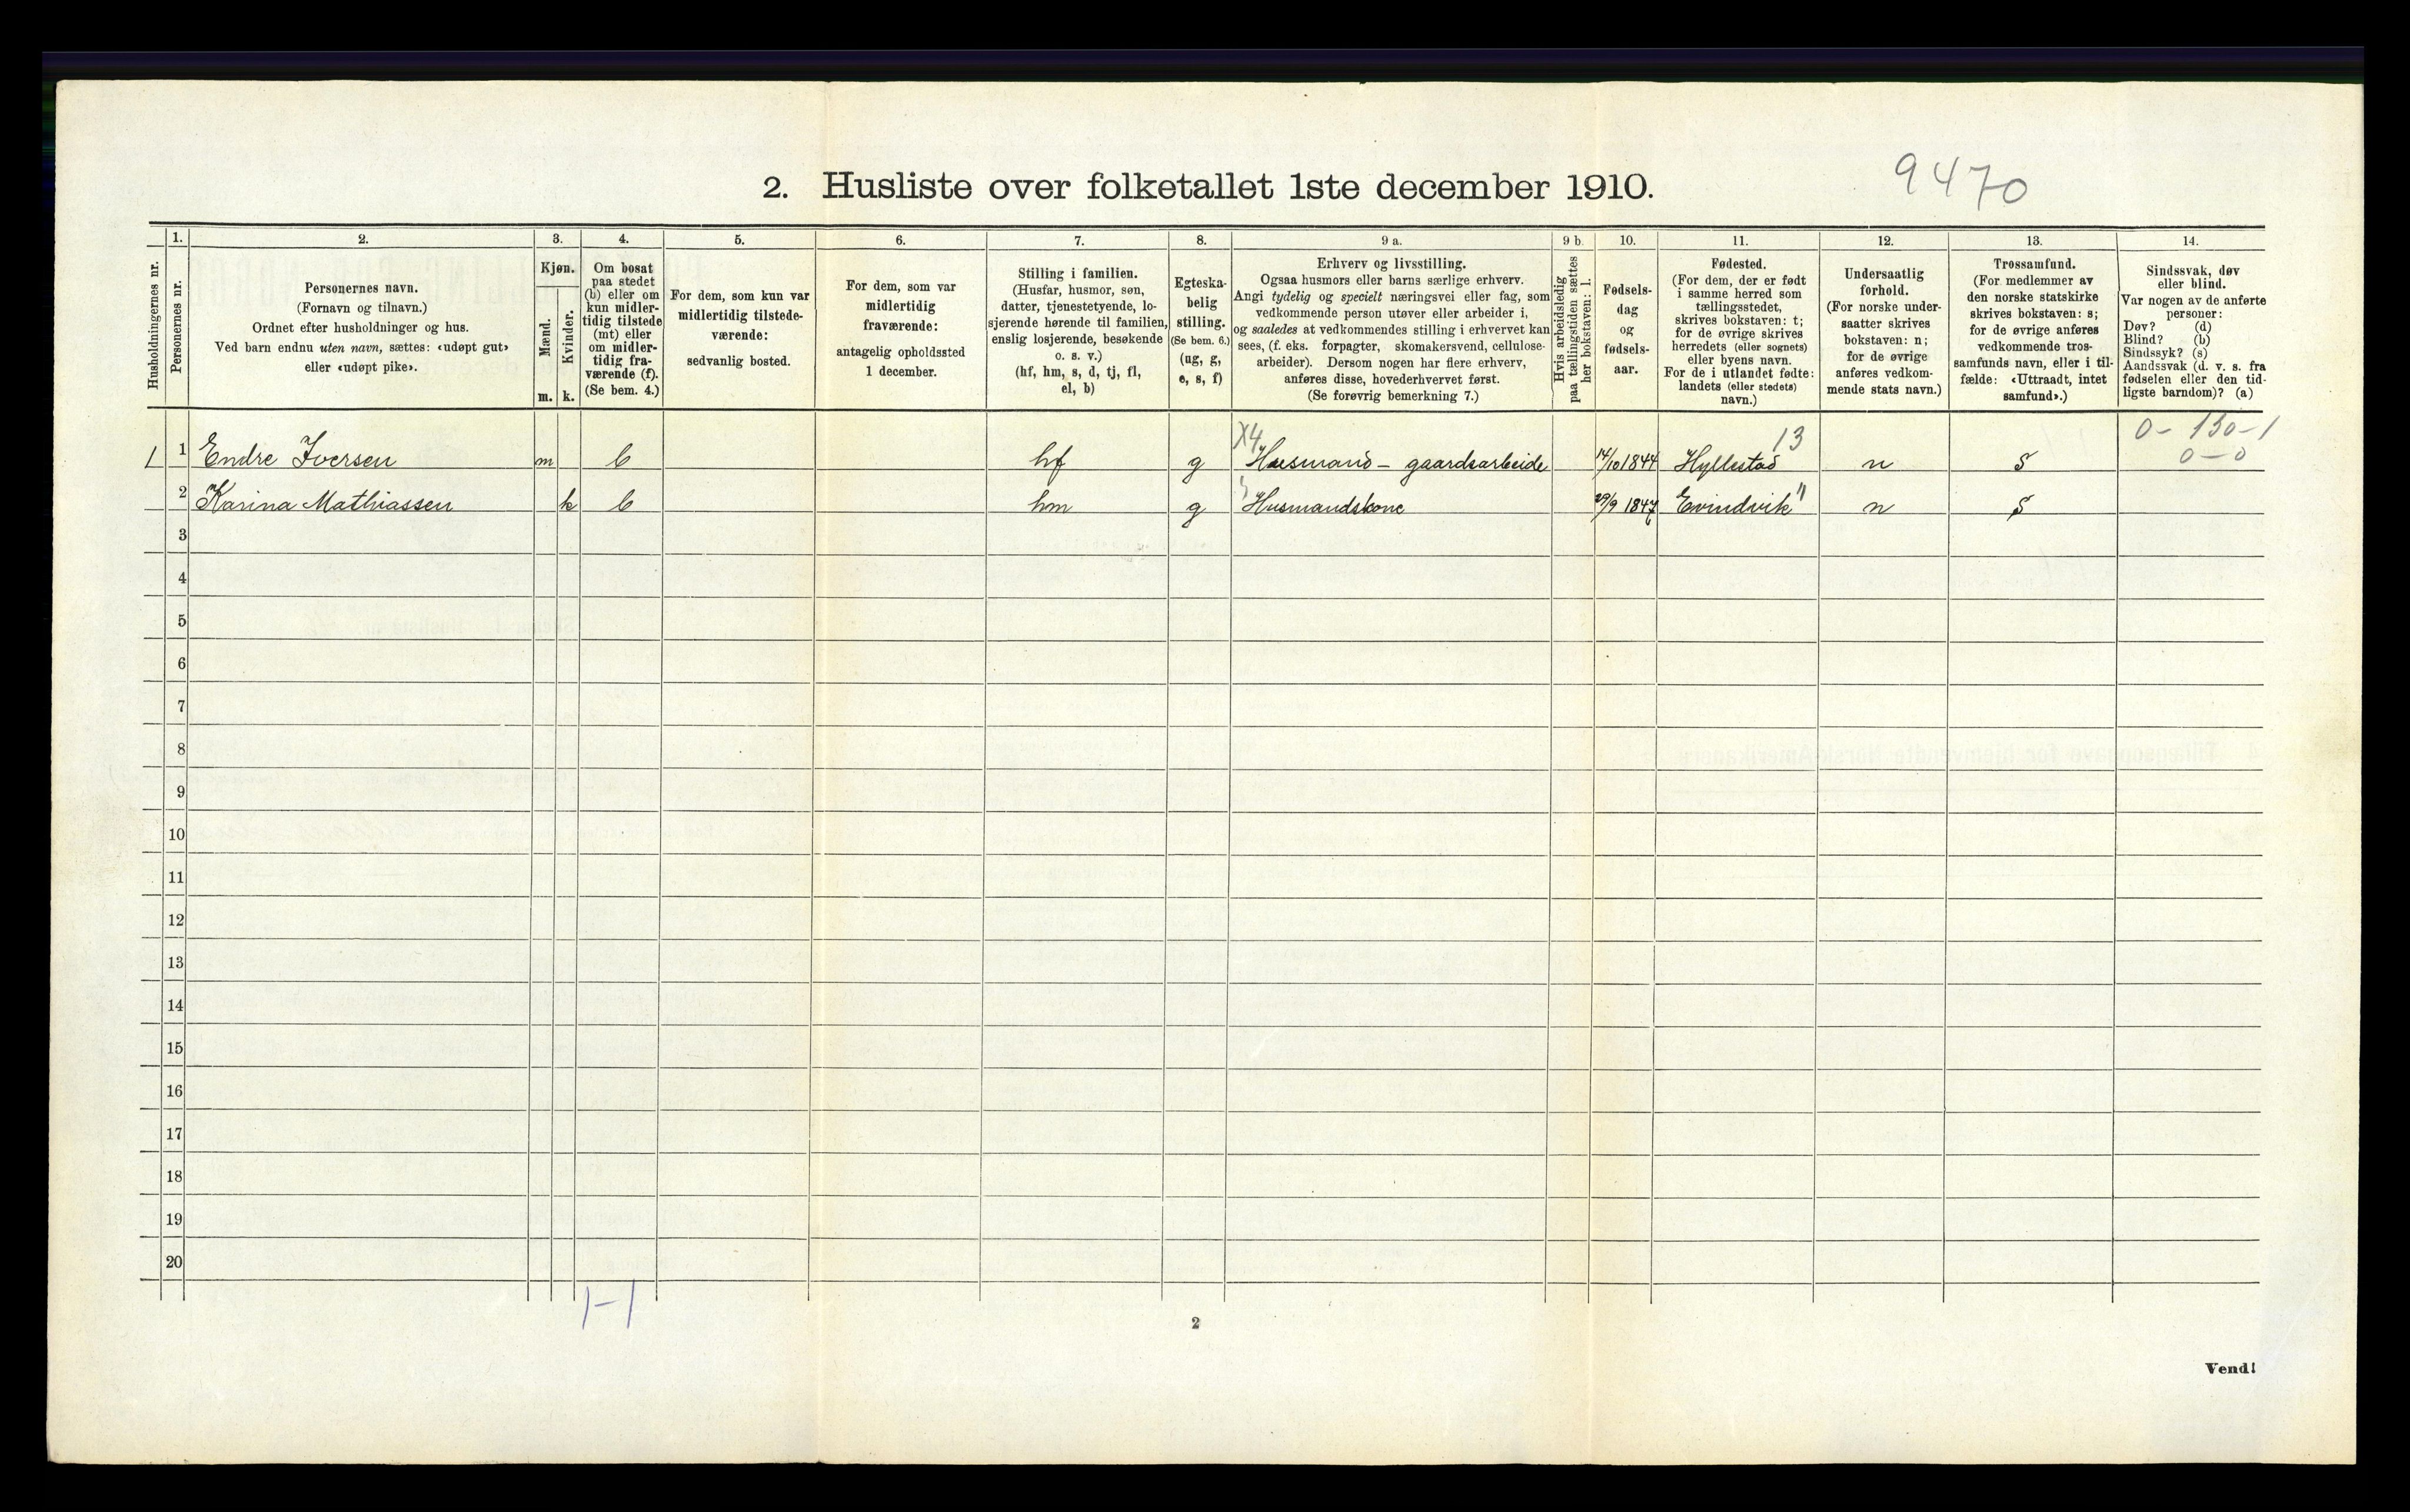 9470
2. Husliste over folketallet 1ste december 1910.
1. 2. 3. 4. 5. 6. 7. 8. 9 a. 9 b. 10. 11. 12. 13. 14.
Husholdningernes nr.
Personernes nr.
Personernes navn.
(Fornavn og tilnavn.)
Ordnet efter husholdninger og hus.
Ved barn endnu uten navn, sættes: «udøpt gut»
eller «udøpt pike».
Kjøn.
Mænd.
Kvinder.
m. k.
Om bosat
paa stedet
(b) eller om
kun midler-
tidig tilstede
(mt) eller
om midler-
tidig fra-
værende (f).
(Se bem. 4.)
For dem, som kun var
midlertidig tilstede-
værende:
sedvanlig bosted.
For dem, som var
midlertidig
fraværende:
antagelig opholdssted
1 december.
Stilling i familien.
(Husfar, husmor, søn,
datter, tjenestetyende, lo-
sjerende hørende til familien,
enslig losjerende, besøkende
o. s. v.)
(hf, hm, s, d, tj, fl,
el, b)
Egteska-
belig
stilling.
(Se bem. 6.)
(ug, g,
e, s, f)
Erhverv og livsstilling.
Ogsaa husmors eller barns særlige erhverv.
Angi tydelig og specielt næringsvei eller fag, som
vedkommende person utøver eller arbeider i,
og saaledes at vedkommendes stilling i erhvervet kan
sees, (f. eks. forpagter, skomakersvend, cellulose-
arbeider). Dersom nogen har flere erhverv,
anføres disse, hovederhvervet først.
(Se forøvrig bemerkning 7.)
Hvis arbeidsledig
paa tællingstiden sættes
her bokstaven: l.
Fødsels-
dag
og
fødsels-
aar.
Fødested.
(For dem, der er født
i samme herred som
tællingsstedet,
skrives bokstaven: t;
for de øvrige skrives
herredets (eller sognets)
eller byens navn.
For de i utlandet fødte:
landets (eller stedets)
navn.)
Undersaatlig
forhold.
(For norske under-
saatter skrives
bokstaven: n;
for de øvrige
anføres vedkom-
mende stats navn.)
Trossamfund.
(For medlemmer av
den norske statskirke
skrives bokstaven: s;
for de øvrige anføres
vedkommende tros-
samfunds navn, eller i til-
fælde: «Uttraadt, intet
samfund».)
Sindssvak, døv
eller blind.
Var nogen av de anførte
personer:
Døv? (d)
Blind? (b)
Sindssyk? (s)
Aandssvak (d. v. s. fra
fødselen eller den tid-
ligste barndom)? (a)
X4 13 0 - 130 - 1
0 - 0
1 1 Endre Iversen m b hf g Husmand - gaardsarbeide 14/10 1844 Hyllestad n s
2 Karina Mathiassen k b hm g Husmandskone 29/9 1847 Evindvik " n s
3
4
5
6
7
8
9
10
11
12
13
14
15
16
17
18
19
20
1-1
2
Vend!